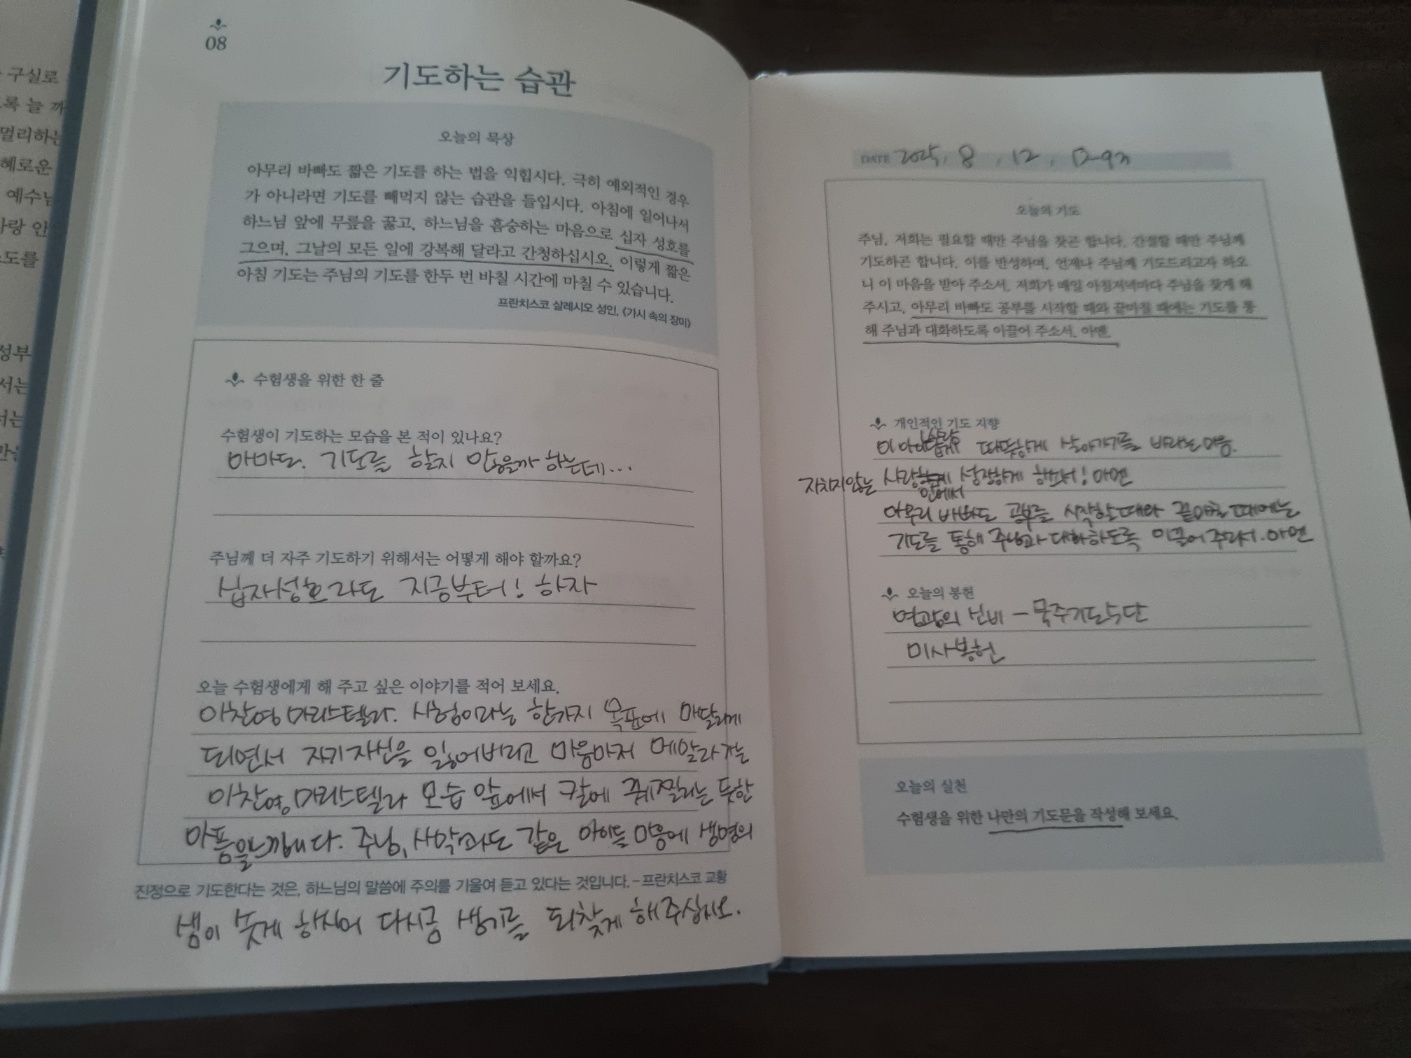 구실로
록 늘 까
멀리하는
혜로운
예수님
사랑 안
도를
성부
서는
08
기도하는 습관
오늘의 묵상
아무리 바빠도 짧은 기도를 하는 법을 익힙시다. 극히 예외적인 경우
가 아니라면 기도를 빼먹지 않는 습관을 들입시다. 아침에 일어나서
하느님 앞에 무릎을 꿇고, 하느님을 흠숭하는 마음으로 십자 성호를
그으며, 그날의 모든 일에 강복해 달라고 간청하십시오. 이렇게 짧은
아침 기도는 주님의 기도를 한두 번 바칠 시간에 마칠 수 있습니다.
프란치스코 살레시오 성인, 《가시 속의 장미》
수험생을 위한 한 줄
수험생이 기도하는 모습을 본 적이 있나요?
아마도. 기도를 할지 않을까 하는데...
주님께 더 자주 기도하기 위해서는 어떻게 해야 할까요?
십자성호라도 지금부터! 하자
오늘 수험생에게 해 주고 싶은 이야기를 적어 보세요.
이찬영 마리스텔라. 시험이라는 한가지 목표에 매달리게
되면서 자기자신을 잃어버리고 마음마저 메말라가는
이찬영 마리스텔라 모습 앞에서 칼에 꿰찔리는 듯한
아픔을 느낍니다. 주님, 사막과도 같은 아이들 마음에 생명의
진정으로 기도한다는 것은, 하느님의 말씀에 주의를 기울여 듣고 있다는 것입니다. – 프란치스코 교황
샘이 솟게 하시어 다시금 생기를 되찾게 해주십시오.
DATE 2025. 8 . 12 . D-93
오늘의 기도
주님, 저희는 필요할 때만 주님을 찾곤 합니다. 간절할 때만 주님께
기도하곤 합니다. 이를 반성하며, 언제나 주님께 기도드리고자 하오
니 이 마음을 받아 주소서. 저희가 매일 아침저녁마다 주님을 찾게 해
주시고, 아무리 바빠도 공부를 시작할 때와 끝마칠 때에는 기도를 통
해 주님과 대화하도록 이끌어 주소서. 아멘.
개인적인 기도 지향
따뜻하게 살아가기를 바라는 마음.
지치지않는 사랑 안에서 성장하게 하소서! 아멘
아무리 바빠도 공부를 시작할때와 끝마칠 때에는
기도를 통해 주님과 대화하도록 이끌어주소서. 아멘
오늘의 봉헌
영광의 신비 – 묵주기도 5단
미사봉헌
오늘의 실천
수험생을 위한 나만의 기도문을 작성해 보세요.